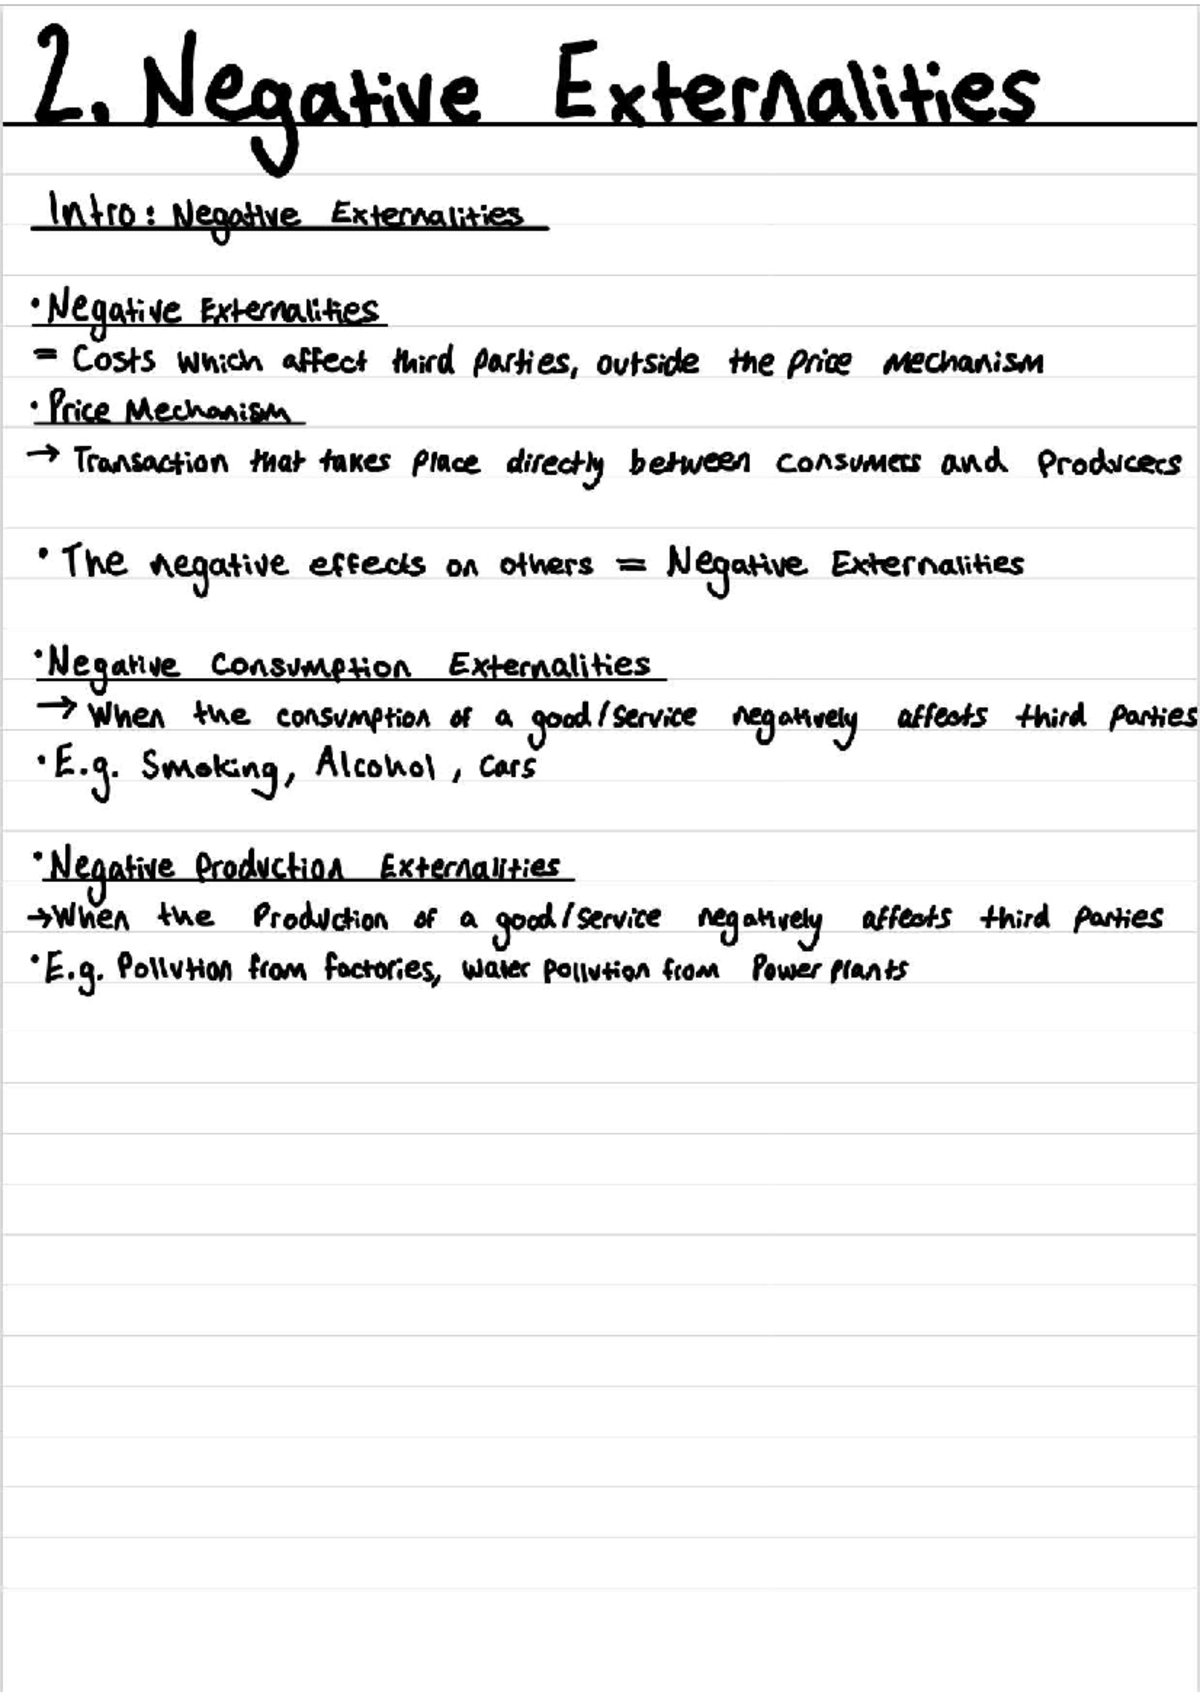 2. Negative Externalities
Intro: Negative Externalities
• Negative Externalities
= Costs which affect third parties, outside the price mechanism
• Price Mechanism
→ Transaction that takes place directly between consumers and producers
• The negative effects on others = Negative Externalities
• Negative Consumption Externalities
→ When the consumption of a good/service negatively affects third parties
• E.g. Smoking, Alcohol, cars
• Negative Production Externalities
→ When the Production of a good/service negatively affects third parties
• E.g. Pollution from factories, water pollution from Power plants